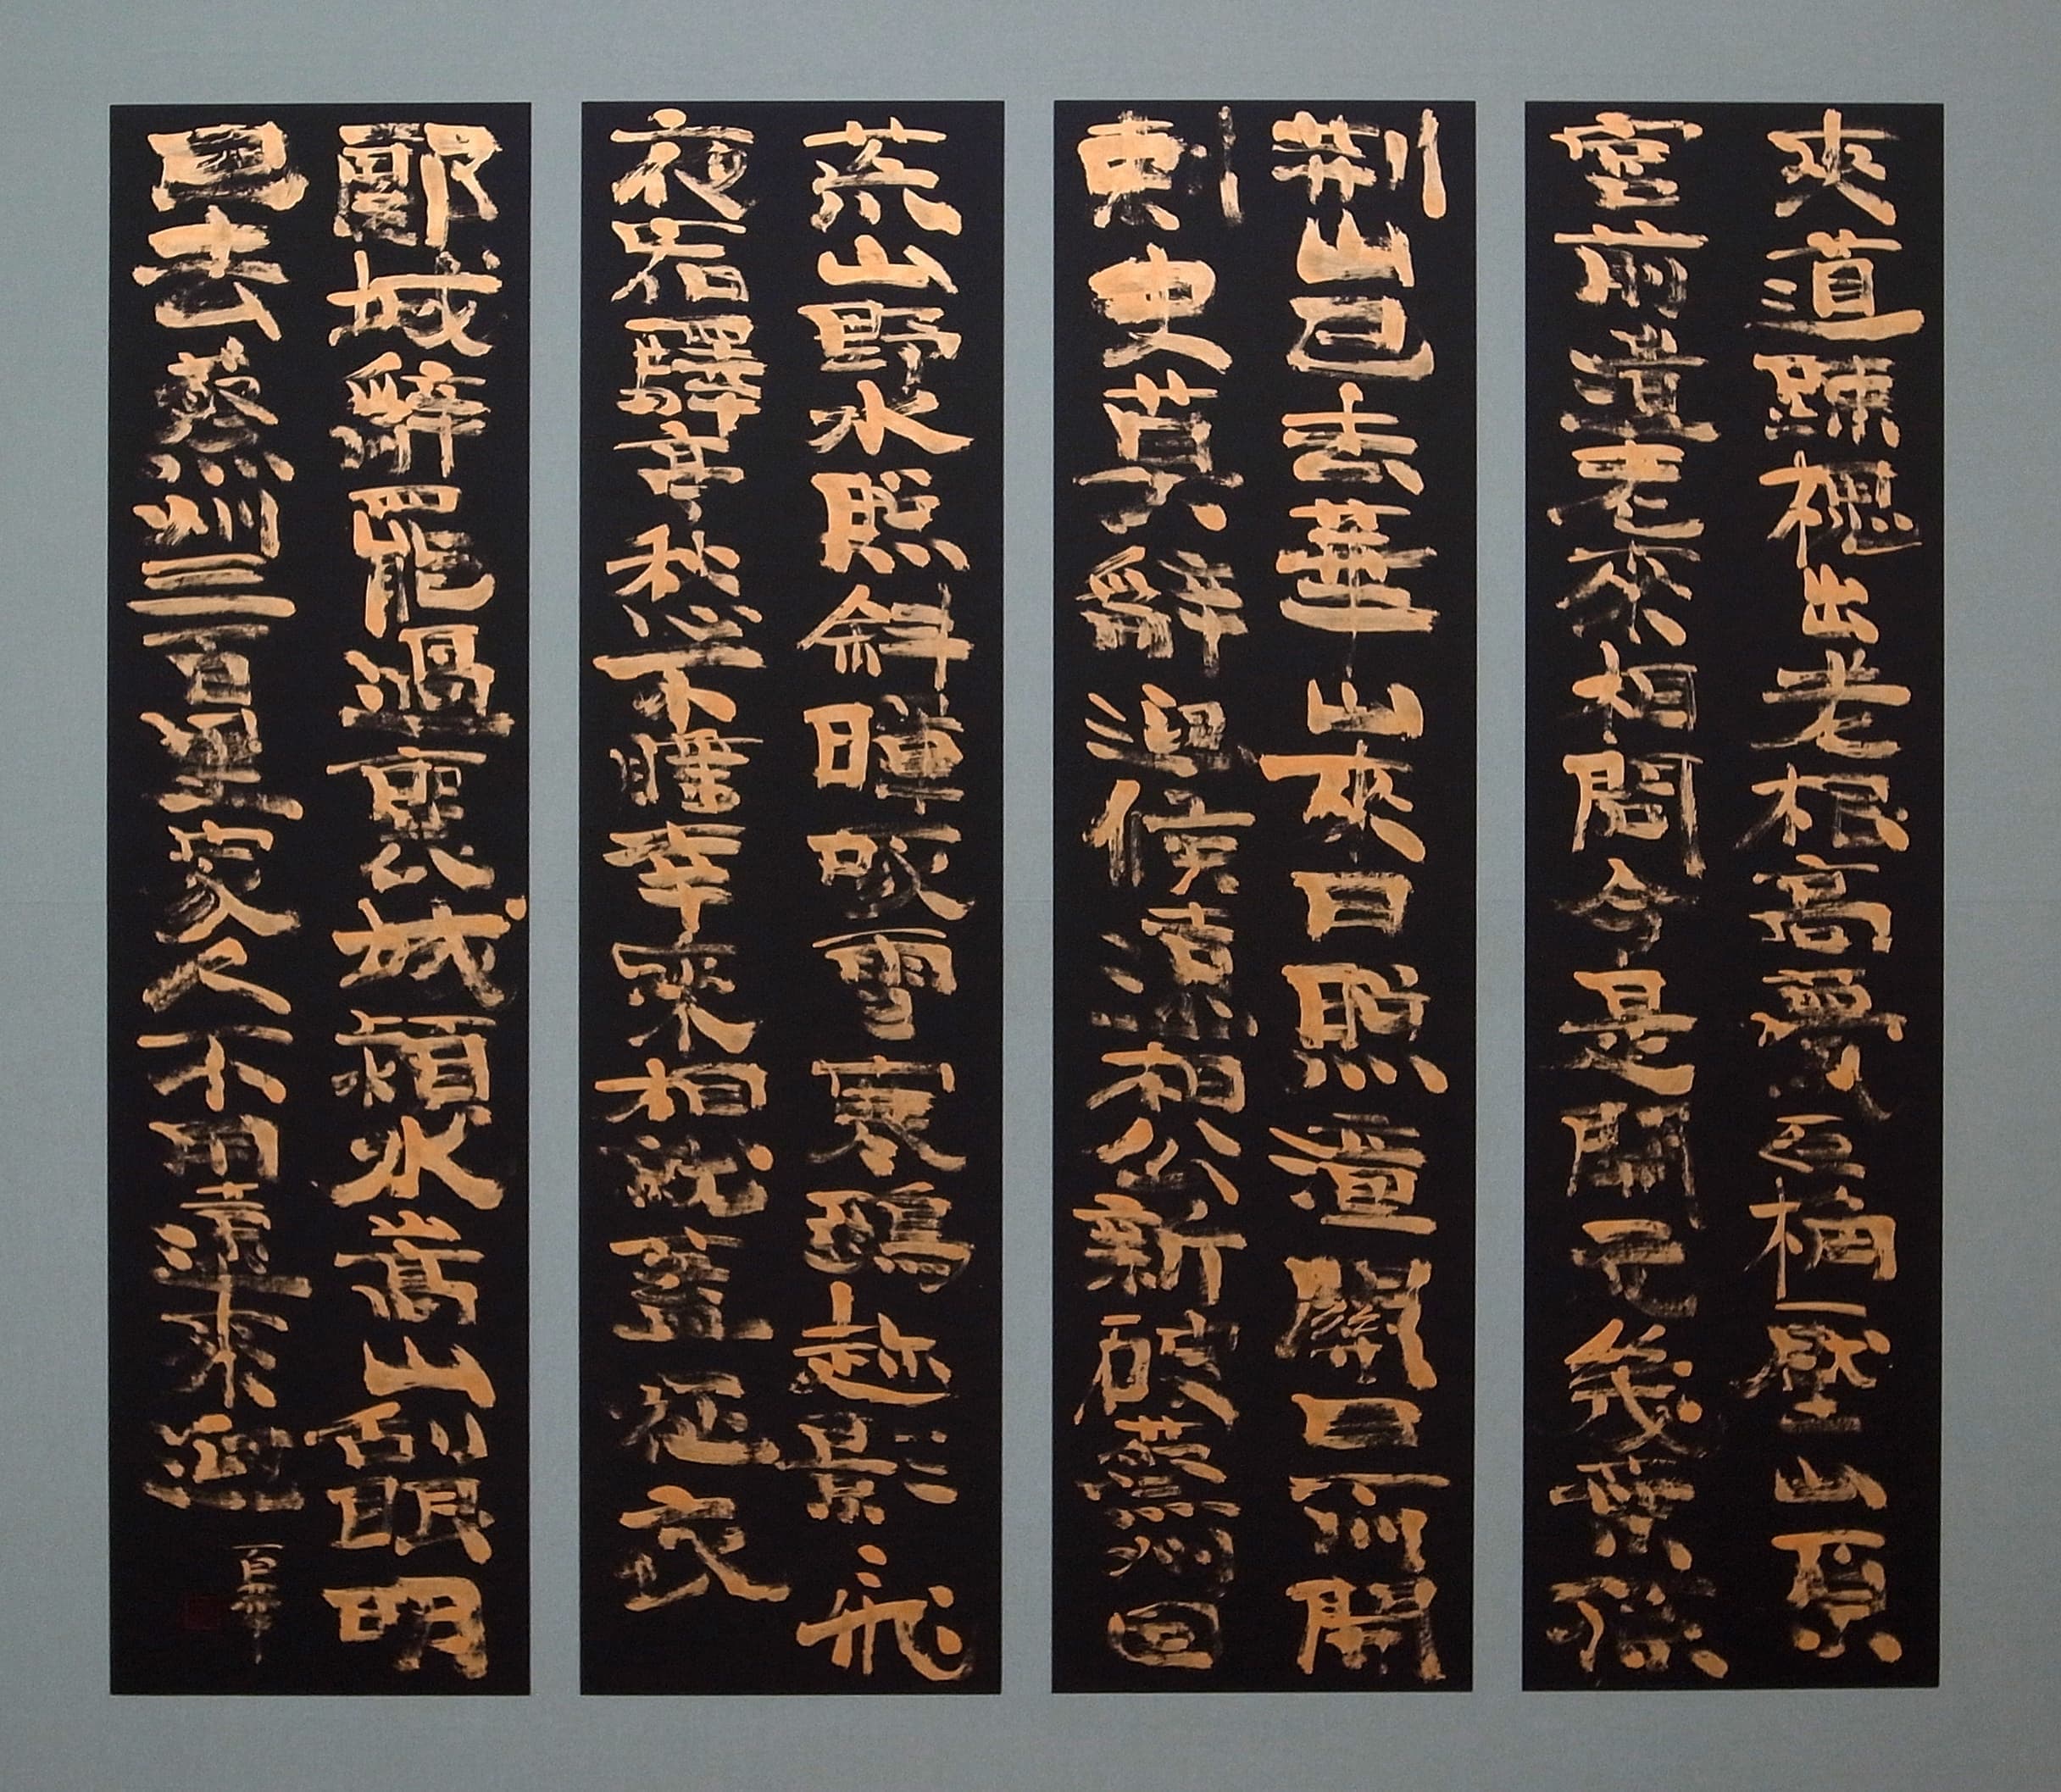 夾道疎槐出老根高甍巨桷壓山原
宮前遺老來相問今是開元幾葉孫
荊山已去華山來日照潼關四扇開
刺史莫辭迎候遠相公新破蔡州回
荒山野水照斜暉啄雪寒鴉趂影飛
夜宿驛亭愁不睡幸來相就蓋征衣
郾城辭罷過襄城潁水嵩山刮眼明
已去蔡州三百里家人不用遠來迎